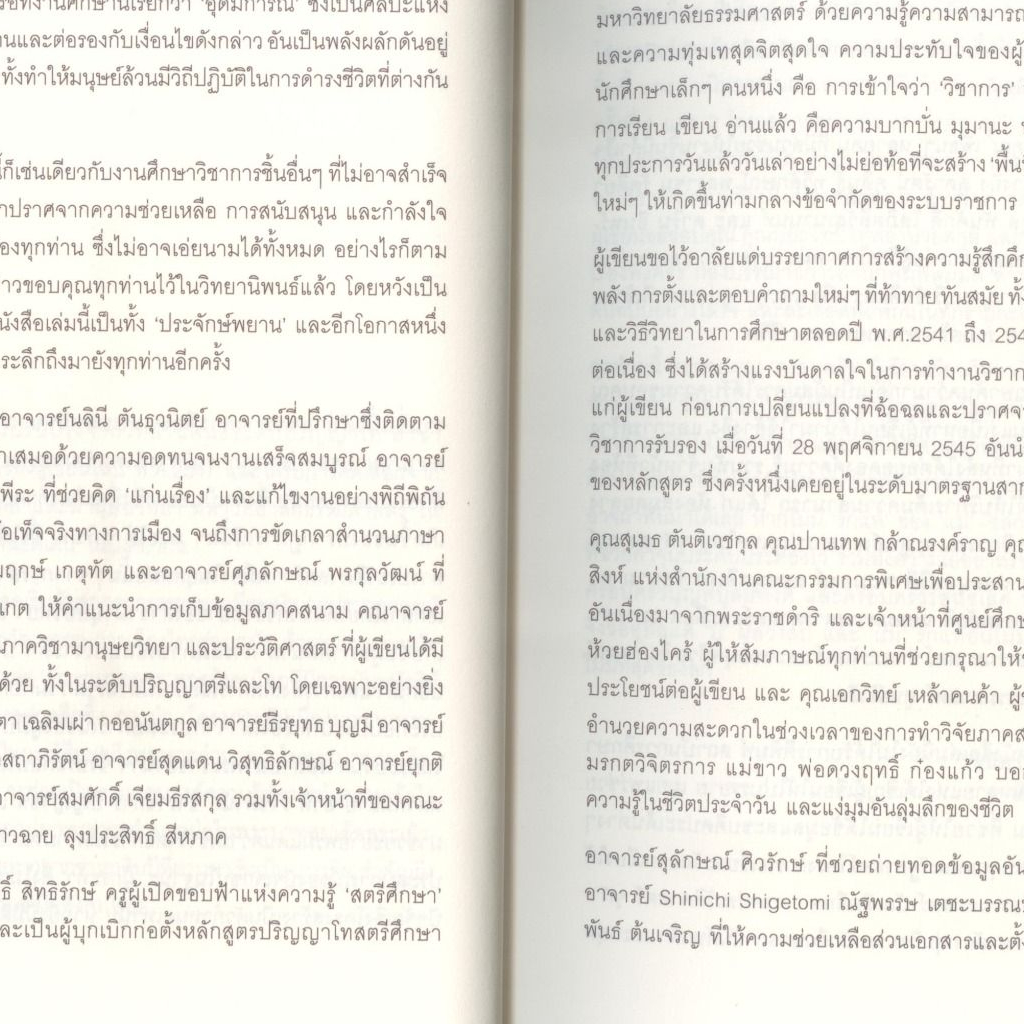 งานศึกษานี้เรียกว่า 'อุดมการณ์' ซึ่งเป็นศิลปะแห่ง
านและต่อรองกับเงื่อนไขดังกล่าว อันเป็นพลังผลักดันอยู่
ทั้งทำให้มนุษย์ล้วนมีวิถีปฏิบัติในการดำรงชีวิตที่ต่างกัน
ก็เช่นเดียวกับงานศึกษาวิชาการชิ้นอื่นๆ ที่ไม่อาจสำเร็จ
ปราศจากความช่วยเหลือ การสนับสนุน และกำลังใจ
องทุกท่าน ซึ่งไม่อาจเอ่ยนามได้ทั้งหมด อย่างไรก็ตาม
าวขอบคุณทุกท่านไว้ในวิทยานิพนธ์แล้ว โดยหวังเป็น
นังสือเล่มนี้เป็นทั้ง 'ประจักษ์พยาน' และอีกโอกาสหนึ่ง
ระลึกถึงมายังทุกท่านอีกครั้ง
อาจารย์นลินี ตันธุวนิตย์ อาจารย์ที่ปรึกษาซึ่งติดตาม
าเสมอด้วยความอดทนจนงานเสร็จสมบูรณ์ อาจารย์
พีระ ที่ช่วยคิด 'แก่นเรื่อง' และแก้ไขงานอย่างพิถีพิถัน
้อเท็จจริงทางการเมือง จนถึงการขัดเกลาสำนวนภาษา
มฤกษ์ เกตุทัต และอาจารย์ศุภลักษณ์ พรกุลวัฒน์ ที่
เกต ให้คำแนะนำการเก็บข้อมูลภาคสนาม คณาจารย์
ภาควิชามานุษยวิทยา และประวัติศาสตร์ ที่ผู้เขียนได้มี
ด้วย ทั้งในระดับปริญญาตรีและโท โดยเฉพาะอย่างยิ่ง
ตา เฉลิมเผ่า กออนันตกูล อาจารย์ธีรยุทธ บุญมี อาจารย์
สถาภิรัตน์ อาจารย์สุดแดน วิสุทธิลักษณ์ อาจารย์ยุกติ
าจารย์สมศักดิ์ เจียมธีรสกุล รวมทั้งเจ้าหน้าที่ของคณะ
าวฉาย ลุงประสิทธิ์ สีหภาค
ธิ์ สิทธิรักษ์ ครูผู้เปิดขอบฟ้าแห่งความรู้ 'สตรีศึกษา'
ละเป็นผู้บุกเบิกก่อตั้งหลักสูตรปริญญาโทสตรีศึกษา
มหาวิทยาลัยธรรมศาสตร์ ด้วยความรู้ความสามารถ
และความทุ่มเทสุดจิตสุดใจ ความประทับใจของผู้
นักศึกษาเล็กๆ คนหนึ่ง คือ การเข้าใจว่า 'วิชาการ'
การเรียน เขียน อ่านแล้ว คือความบากบั่น มุมานะ
ทุกประการวันแล้ววันเล่าอย่างไม่ย่อท้อที่จะสร้าง 'พื้นที่
ใหม่ๆ ให้เกิดขึ้นท่ามกลางข้อจำกัดของระบบราชการ
ผู้เขียนขอไว้อาลัยแด่บรรยากาศการสร้างความรู้สึกคึก
พลัง การตั้งและตอบคำถามใหม่ๆ ที่ท้าทาย ทันสมัย ทั้
และวิธีวิทยาในการศึกษาตลอดปี พ.ศ.2541 ถึง 254
ต่อเนื่อง ซึ่งได้สร้างแรงบันดาลใจในการทำงานวิชาก
แก่ผู้เขียน ก่อนการเปลี่ยนแปลงที่ฉ้อฉลและปราศจา
วิชาการรับรอง เมื่อวันที่ 28 พฤศจิกายน 2545 อันนำ
ของหลักสูตร ซึ่งครั้งหนึ่งเคยอยู่ในระดับมาตรฐานสาก
คุณสุเมธ ตันติเวชกุล คุณปานเทพ กล้าณรงค์ราญ คุณ
สิงห์ แห่งสำนักงานคณะกรรมการพิเศษเพื่อประสาน
อันเนื่องมาจากพระราชดำริ และเจ้าหน้าที่ศูนย์ศึกษ
ห้วยฮ่องไคร้ ผู้ให้สัมภาษณ์ทุกท่านที่ช่วยกรุณาให้ข
ประโยชน์ต่อผู้เขียน และ คุณเอกวิทย์ เหล้าคนค้า ผู้
อำนวยความสะดวกในช่วงเวลาของการทำวิจัยภาคส
มรกตวิจิตรการ แม่ขาว พ่อดวงฤทธิ์ ก๋องแก้ว บอ
ความรู้ในชีวิตประจำวัน และแง่มุมอันลุ่มลึกของชีวิต
อาจารย์สุลักษณ์ ศิวรักษ์ ที่ช่วยถ่ายทอดข้อมูลอัน
อาจารย์ Shinichi Shigetomi ณัฐพรรษ เตชะบรรณ
พันธ์ ต้นเจริญ ที่ให้ความช่วยเหลือส่วนเอกสารและตั้